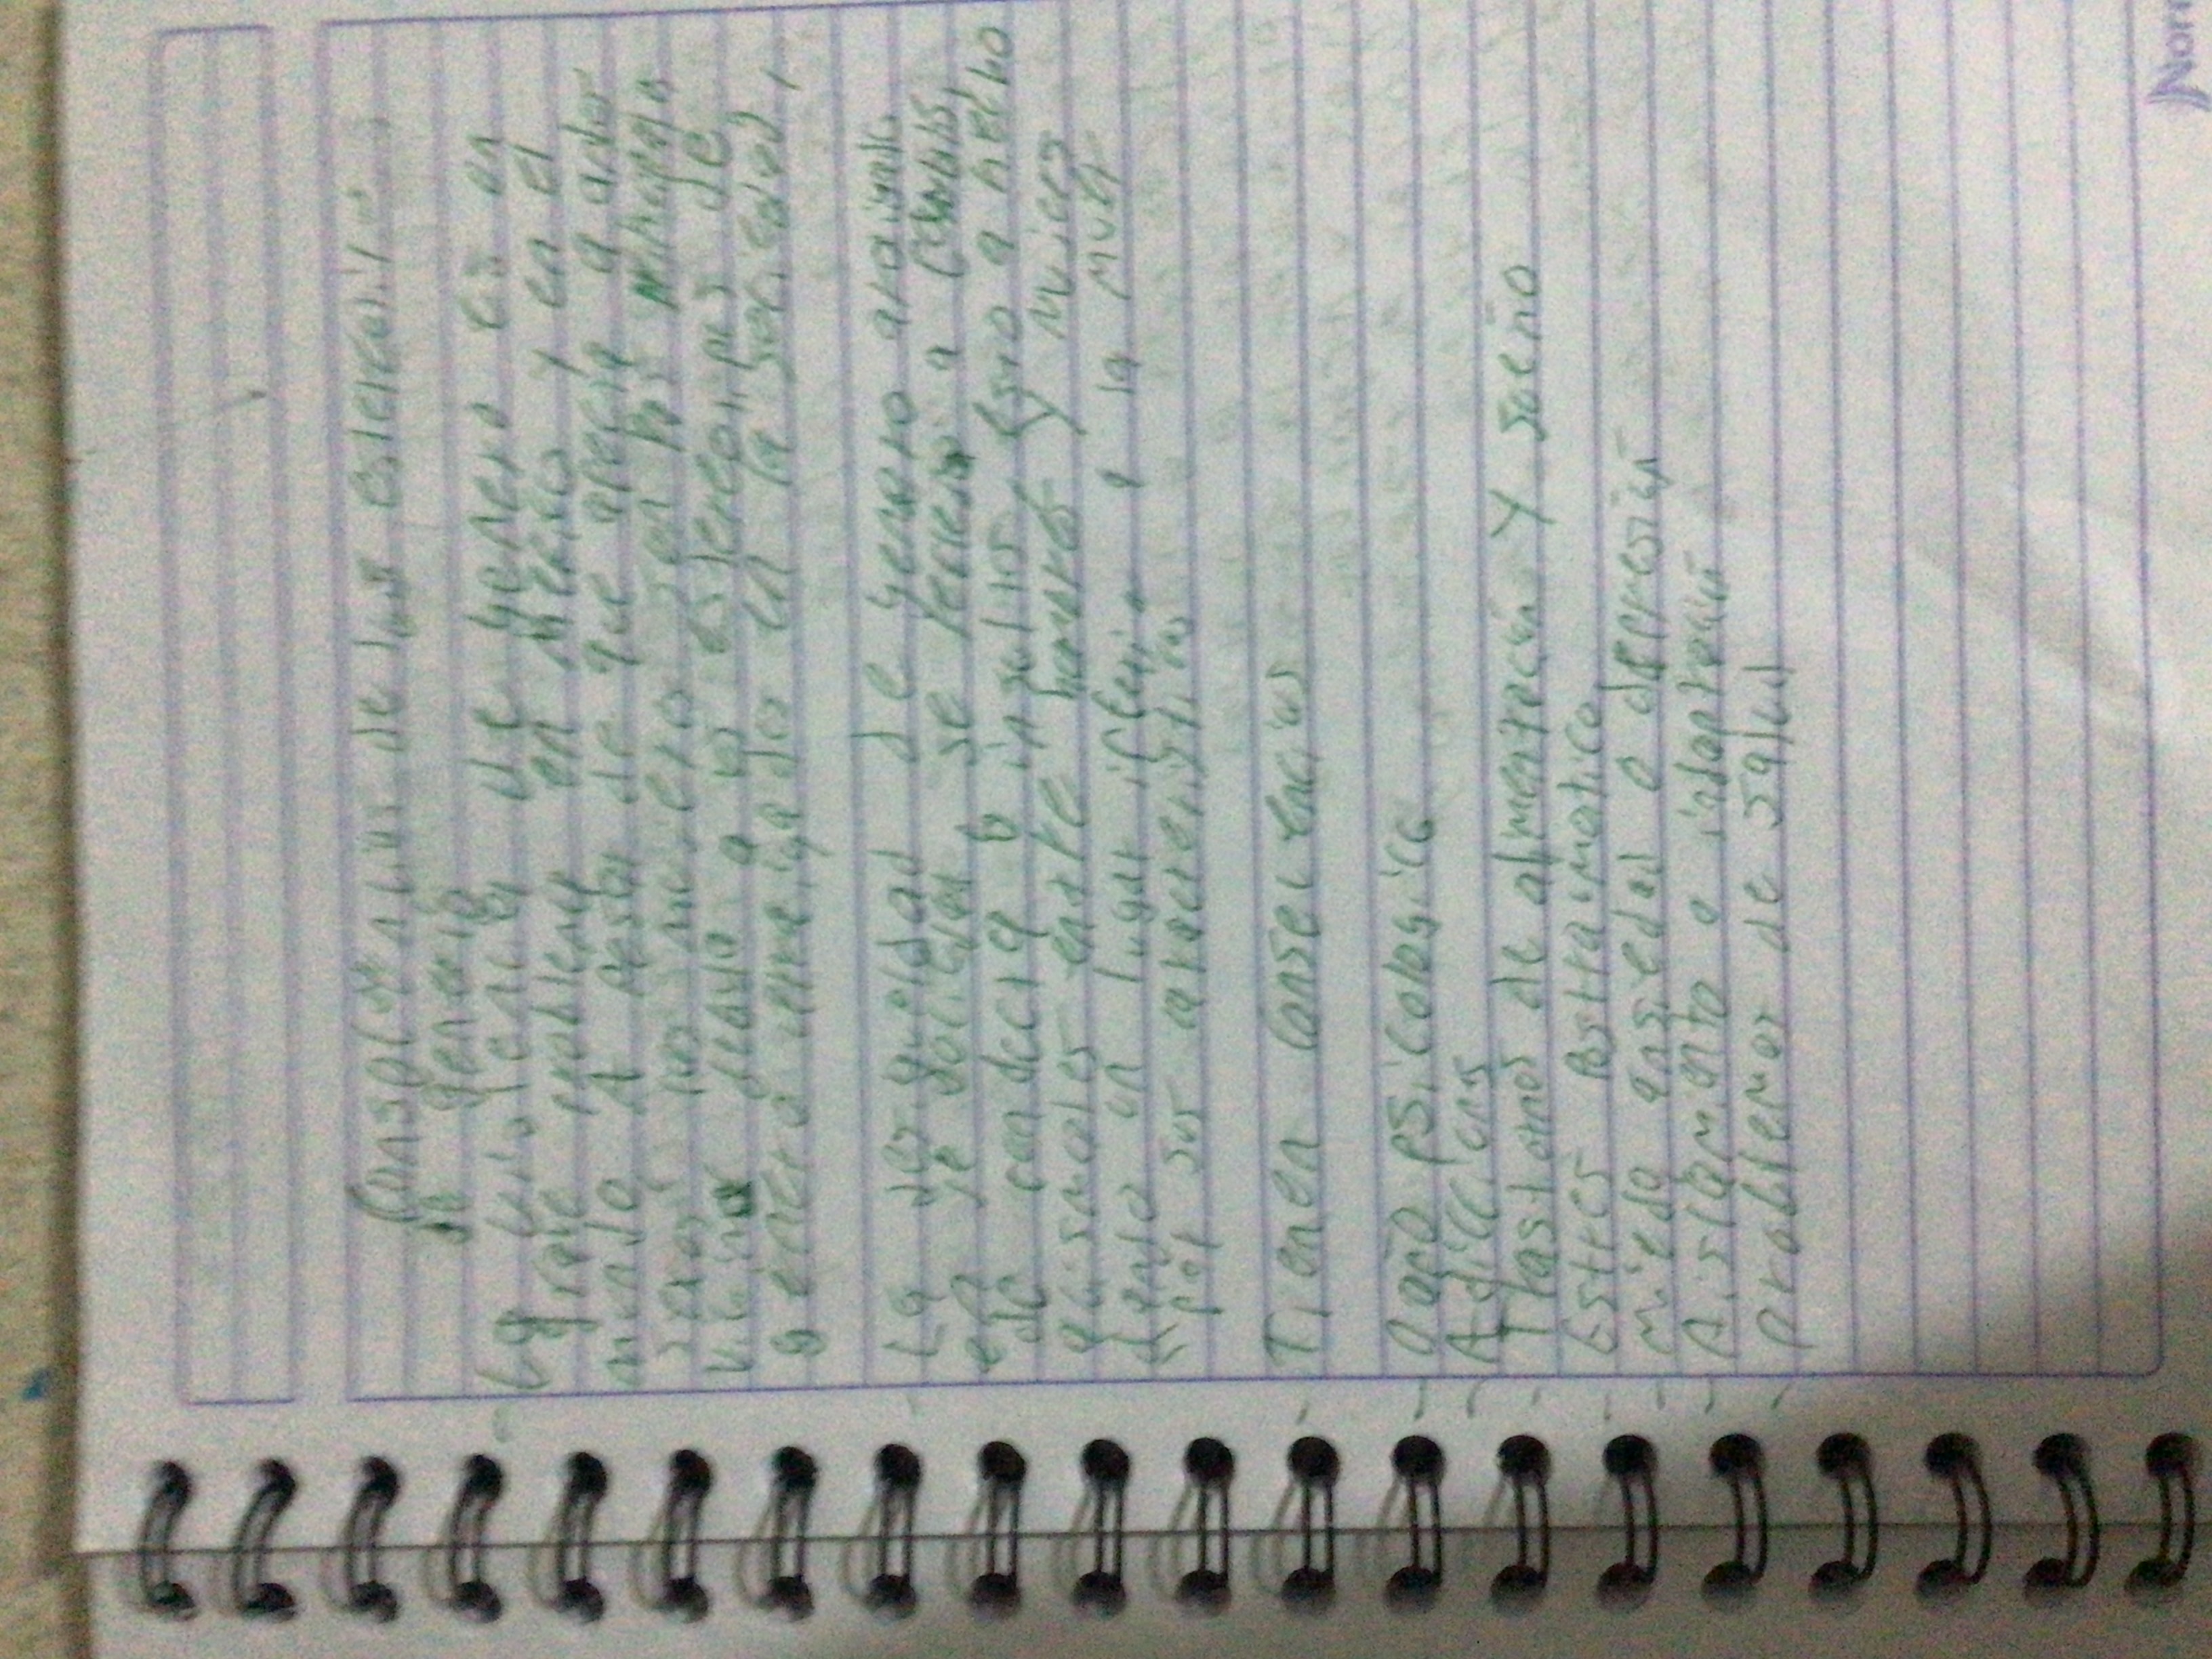 Consecuencias de los estereotipos
de genero
La violencia de genero es un
grave problema en Mexico y en el
mundo a pesar de que afecta a ambos
sexos las mujeres son las
victimas debido a los estereotipos de
genero arraigados en la sociedad,
La desigualdad de genero arraigada
en la sociedad se refiere a
de conducta o insultos Esto a hecho
entre hombres y mujeres
dando un lugar inferior a la mujer
por sus caracteristicas
Tienen consecuencias
Daño psicologico
Adicciones
Trastornos de alimentación y sueño
Estres postraumatico
Miedo ansiedad o depresión
Aislamiento o inadaptación
problemas de salud
Nor